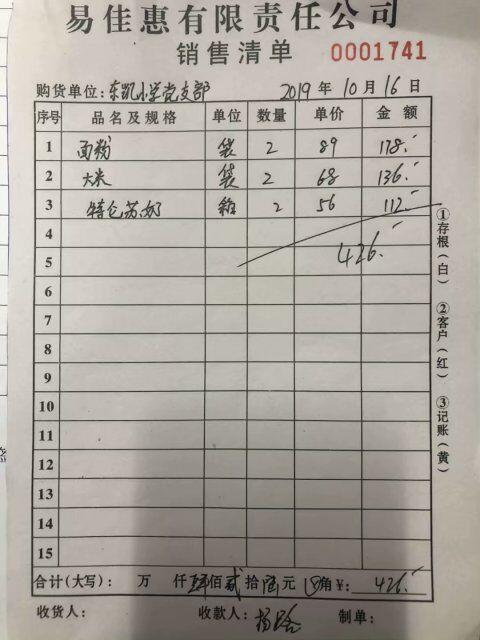 易佳惠有限责任公司
销售清单 0001741
购货单位:东凯小学党支部 2019年10月16日
序号 品名及规格 单位 数量 单价 金额
1 面粉 袋 2 89 178.-
2 大米 袋 2 68 136.-
3 特仑苏奶 箱 2 56 112.-
4 426.-
5
6
7
8
9
10
11
12
13
14
15
合计(大写): 万 仟 肆佰贰拾陆元 角¥: 426.-
收货人: 收款人: 杨 制单:
①存根(白)
②客户(红)
③记账(黄)